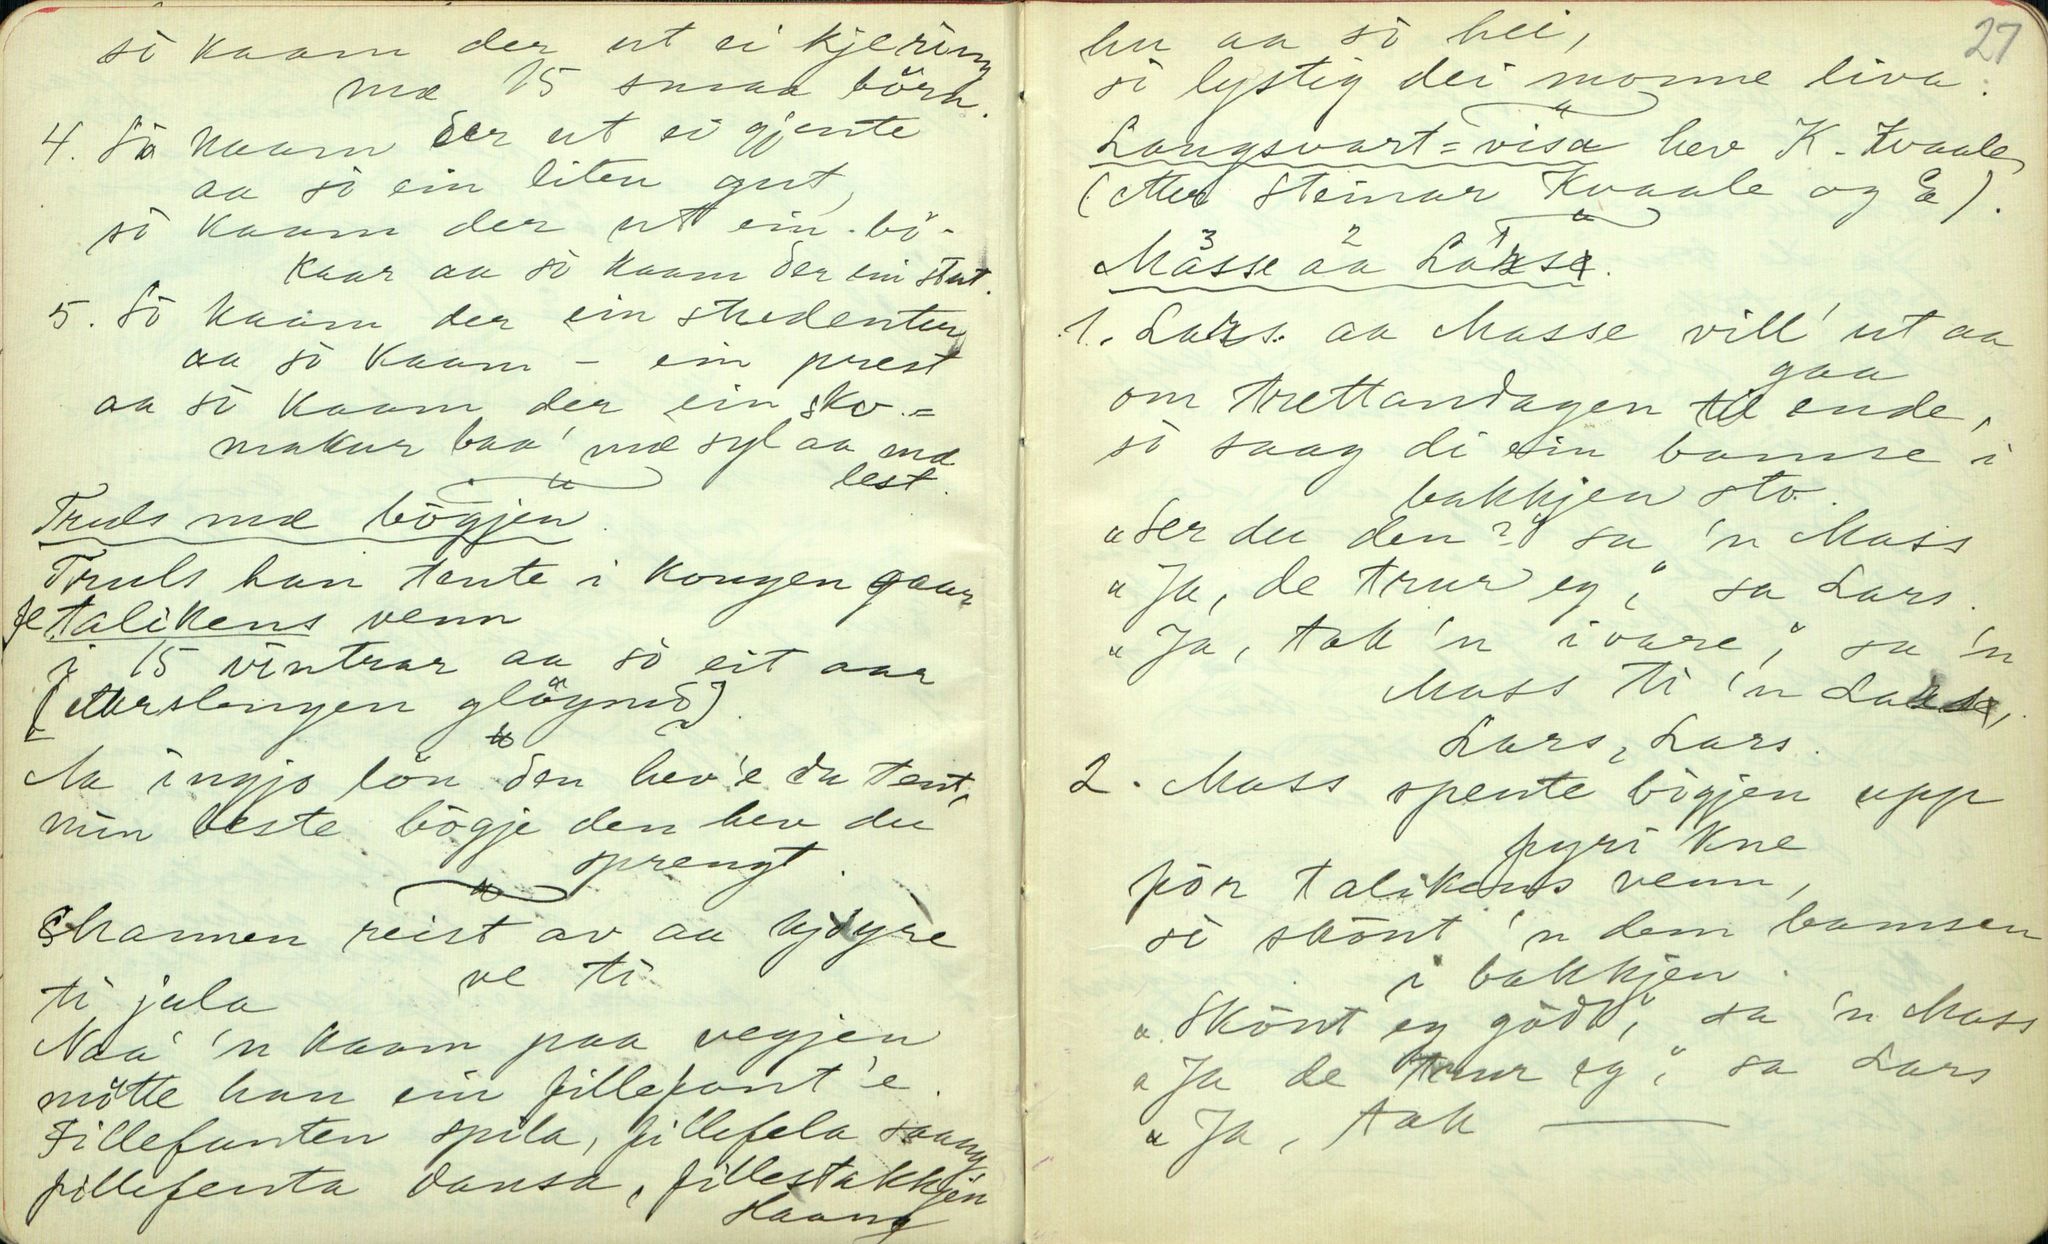 sö kaam der ut ei kjering
mæ 15 smaa börn.
4. Sö kaam der ut ei gjente
aa sö ein liten gut,
sö kaam der ut ein bö-
kaar aa sö kaam der ein stut.
5. Sö kaam der ein studentur
aa sö kaam – ein prest
aa sö kaam der ein sko-
makur baa' mæ syl aa mæ
lest.
Truls mæ bögjen.
Truls han tente i kongen gaar
fe talikens venn
i 15 vintrar aa sö eit aar
[etterslengen glöymd].
Aa ingjo lön den hev'e du tent,
min beste bögje den hev du
sprengt.
Mannen reist av aa kjöyre
ve ti
ti jula
Naa 'n kaam paa vegjen
mötte han ein fillefant'e.
Fillefanten spila, fillefela saang
fillefenta dansa, fillestakkjen
slaang
27
hu aa sö hei,
sö lystig dei monne liva.
Langsvart-visa hev K. Kvaale
(etter Steinar Kvaale og E).
3 2 1
Masse aa Larse.
1. Lars aa Masse vill' ut aa
gaa
om trettandagen til ende,
sö saag di ein bamse i
bakkjen sto.
"Ser du den?" sa 'n Mass
"Ja, de trur eg", sa Lars.
"Ja, tak 'n i vare", sa 'n
Mass ti 'n Lars,
Lars, Lars.
2. Mass spente bögjen upp
fyri kne
för talikens venn,
sö skönt 'n dem bamsen
i bakkjen.
"Skönt eg göd", sa 'n Mass
"Ja de trur eg", sa Lars
"Ja, tak —